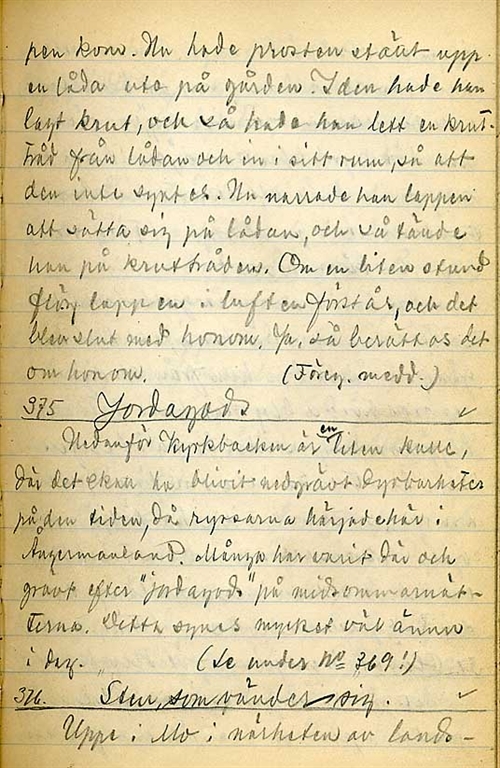 pen kom. Nu hade prosten ställt upp
en låda ute på gården. I den hade han
lagt krut, och så hade han lett en krut-
tråd från lådan och in i sitt rum, så att
den inte syntes. Nu narrade han lappen
att sätta sig på lådan, och så tände
han på kruttråden. Om en liten stund
flög lappen i luften förstås, och det
blev slut med honom. Ja, så berättas det
om honom. (Föreg. medd.)
375 Jordagods ✓
Nedanför Kyrkbacken är en liten kulle,
där det skall ha blivit nedgrävt dyrbarheter
på den tiden, då ryssarna härjade här i
Ångermanland. Många har varit där och
grävt efter "jordagods" på midsommarnät-
terna. Detta synes mycket väl ännu
i dag. (Se under No 369!)
376. Sten, som vänder sig. ✓
Uppe i Mo i närheten av lands-